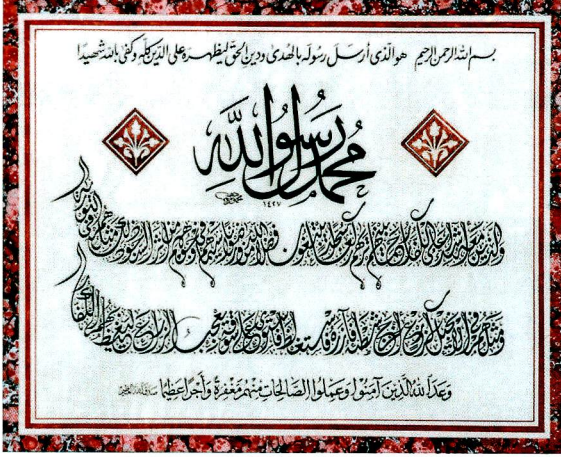 بسم الله الرحمن الرحيم هو الذي أرسل رسوله بالهدى ودين الحق ليظهره على الدين كله وكفى بالله شهيدا
محمد رسول الله
١٤٢٧
والذين معه أشداء على الكفار رحماء بينهم تراهم ركعا سجدا يبتغون فضلا من الله ورضوانا سيماهم في وجوههم من أثر السجود ذلك مثلهم في التوراة
ومثلهم في الإنجيل كزرع أخرج شطأه فآزره فاستغلظ فاستوى على سوقه يعجب الزراع ليغيظ بهم الكفار
وعد الله الذين آمنوا وعملوا الصالحات منهم مغفرة وأجرا عظيما صدق الله العظيم